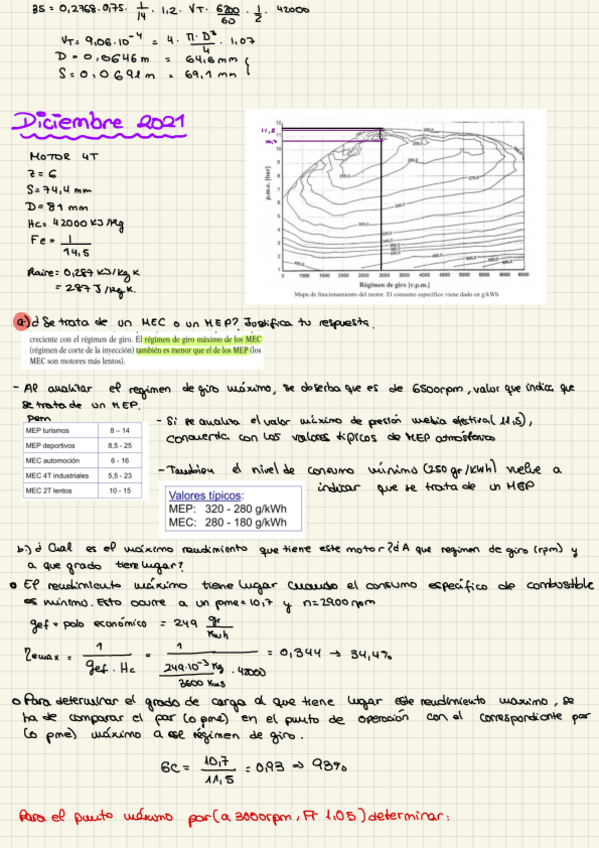 35 = 0,2768 · 0,75 · 1/14 · 1,2 · VT · 6200/60 · 1/2 · 42000
VT = 9,06·10⁻⁴ = 4 · π·D²/4 · 1,07
D = 0,0646 m = 64,6 mm
S = 0,0691 m = 69,1 mm
Diciembre 2021
MOTOR 4T
Z = 6
S = 74,4 mm
D = 81 mm
Hc = 42000 KJ/Kg
Fe = 1/14,5
Raire = 0,287 KJ/Kg K
= 287 J/Kg K.
p.m.e. [bar]
12
11
10
9
8
7
6
5
4
3
2
1
11,5
10,7
0 500 1000 1500 2000 2500 3000 3500 4000 4500 5000 5500 6000 6500
Régimen de giro [r.p.m.]
Mapa de funcionamiento del motor. El consumo específico viene dado en g/kWh
a) ¿Se trata de un MEC o un MEP? Justifica tu respuesta.
creciente con el régimen de giro. El régimen de giro máximo de los MEC
(régimen de corte de la inyección) también es menor que el de los MEP (los
MEC son motores más lentos).
- Al analizar el regimen de giro máximo, se observa que es de 6500rpm, valor que indica que
se trata de un MEP.
pem
MEP turismos 8 – 14
MEP deportivos 8,5 - 25
MEC automoción 6 - 16
MEC 4T industriales 5,5 - 23
MEC 2T lentos 10 - 15
- Si se analiza el valor máximo de presión media efectiva (11,5),
concuerda con los valores típicos de MEP atmósferos
- Tambien el nivel de consumo mínimo (250 gr/kWh) vuelve a
indicar que se trata de un MEP
Valores típicos:
MEP: 320 - 280 g/kWh
MEC: 280 - 180 g/kWh
b.) ¿Cual es el máximo rendimiento que tiene este motor? ¿A que regimen de giro (rpm) y
a que grado tiene lugar?
o El rendimiento máximo tiene lugar cuando el consumo específico de combustible
es mínimo. Esto ocurre a un pme = 10,7 y n = 2900 rpm
gef = polo económico = 249 gr/Kwh
ηemax = 1/(gef · Hc) = 1/(249·10⁻³ Kg/3600 Kws · 42000) = 0,344 → 34,4%
o Para determinar el grado de carga al que tiene lugar este rendimiento maximo, se
ha de comparar el par (o pme) en el punto de operación con el correspondiente par
(o pme) máximo a ese régimen de giro.
GC = 10,7/11,5 = 0,93 ⇒ 93%
Para el punto máximo par (a 3000rpm, Fr 1,05) determinar: